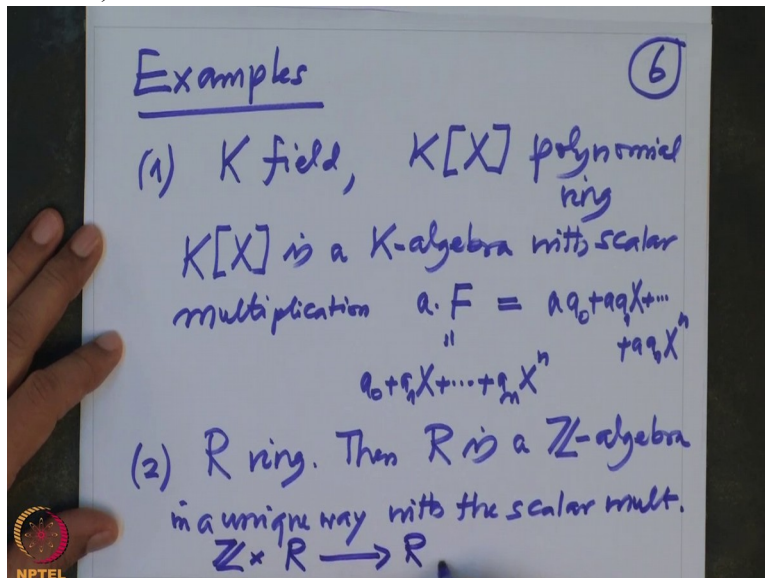 Examples
6
(1) K field, K[X] polynomial
ring
K[X] is a K-algebra with scalar
multiplication a.F = aa₀+aa₁X+⋯
+aaₙXⁿ
"
a₀+a₁X+⋯+aₙXⁿ
(2) R ring. Then R is a ℤ-algebra
in a unique way with the scalar mult.
ℤ× R ⟶ R
NPTEL